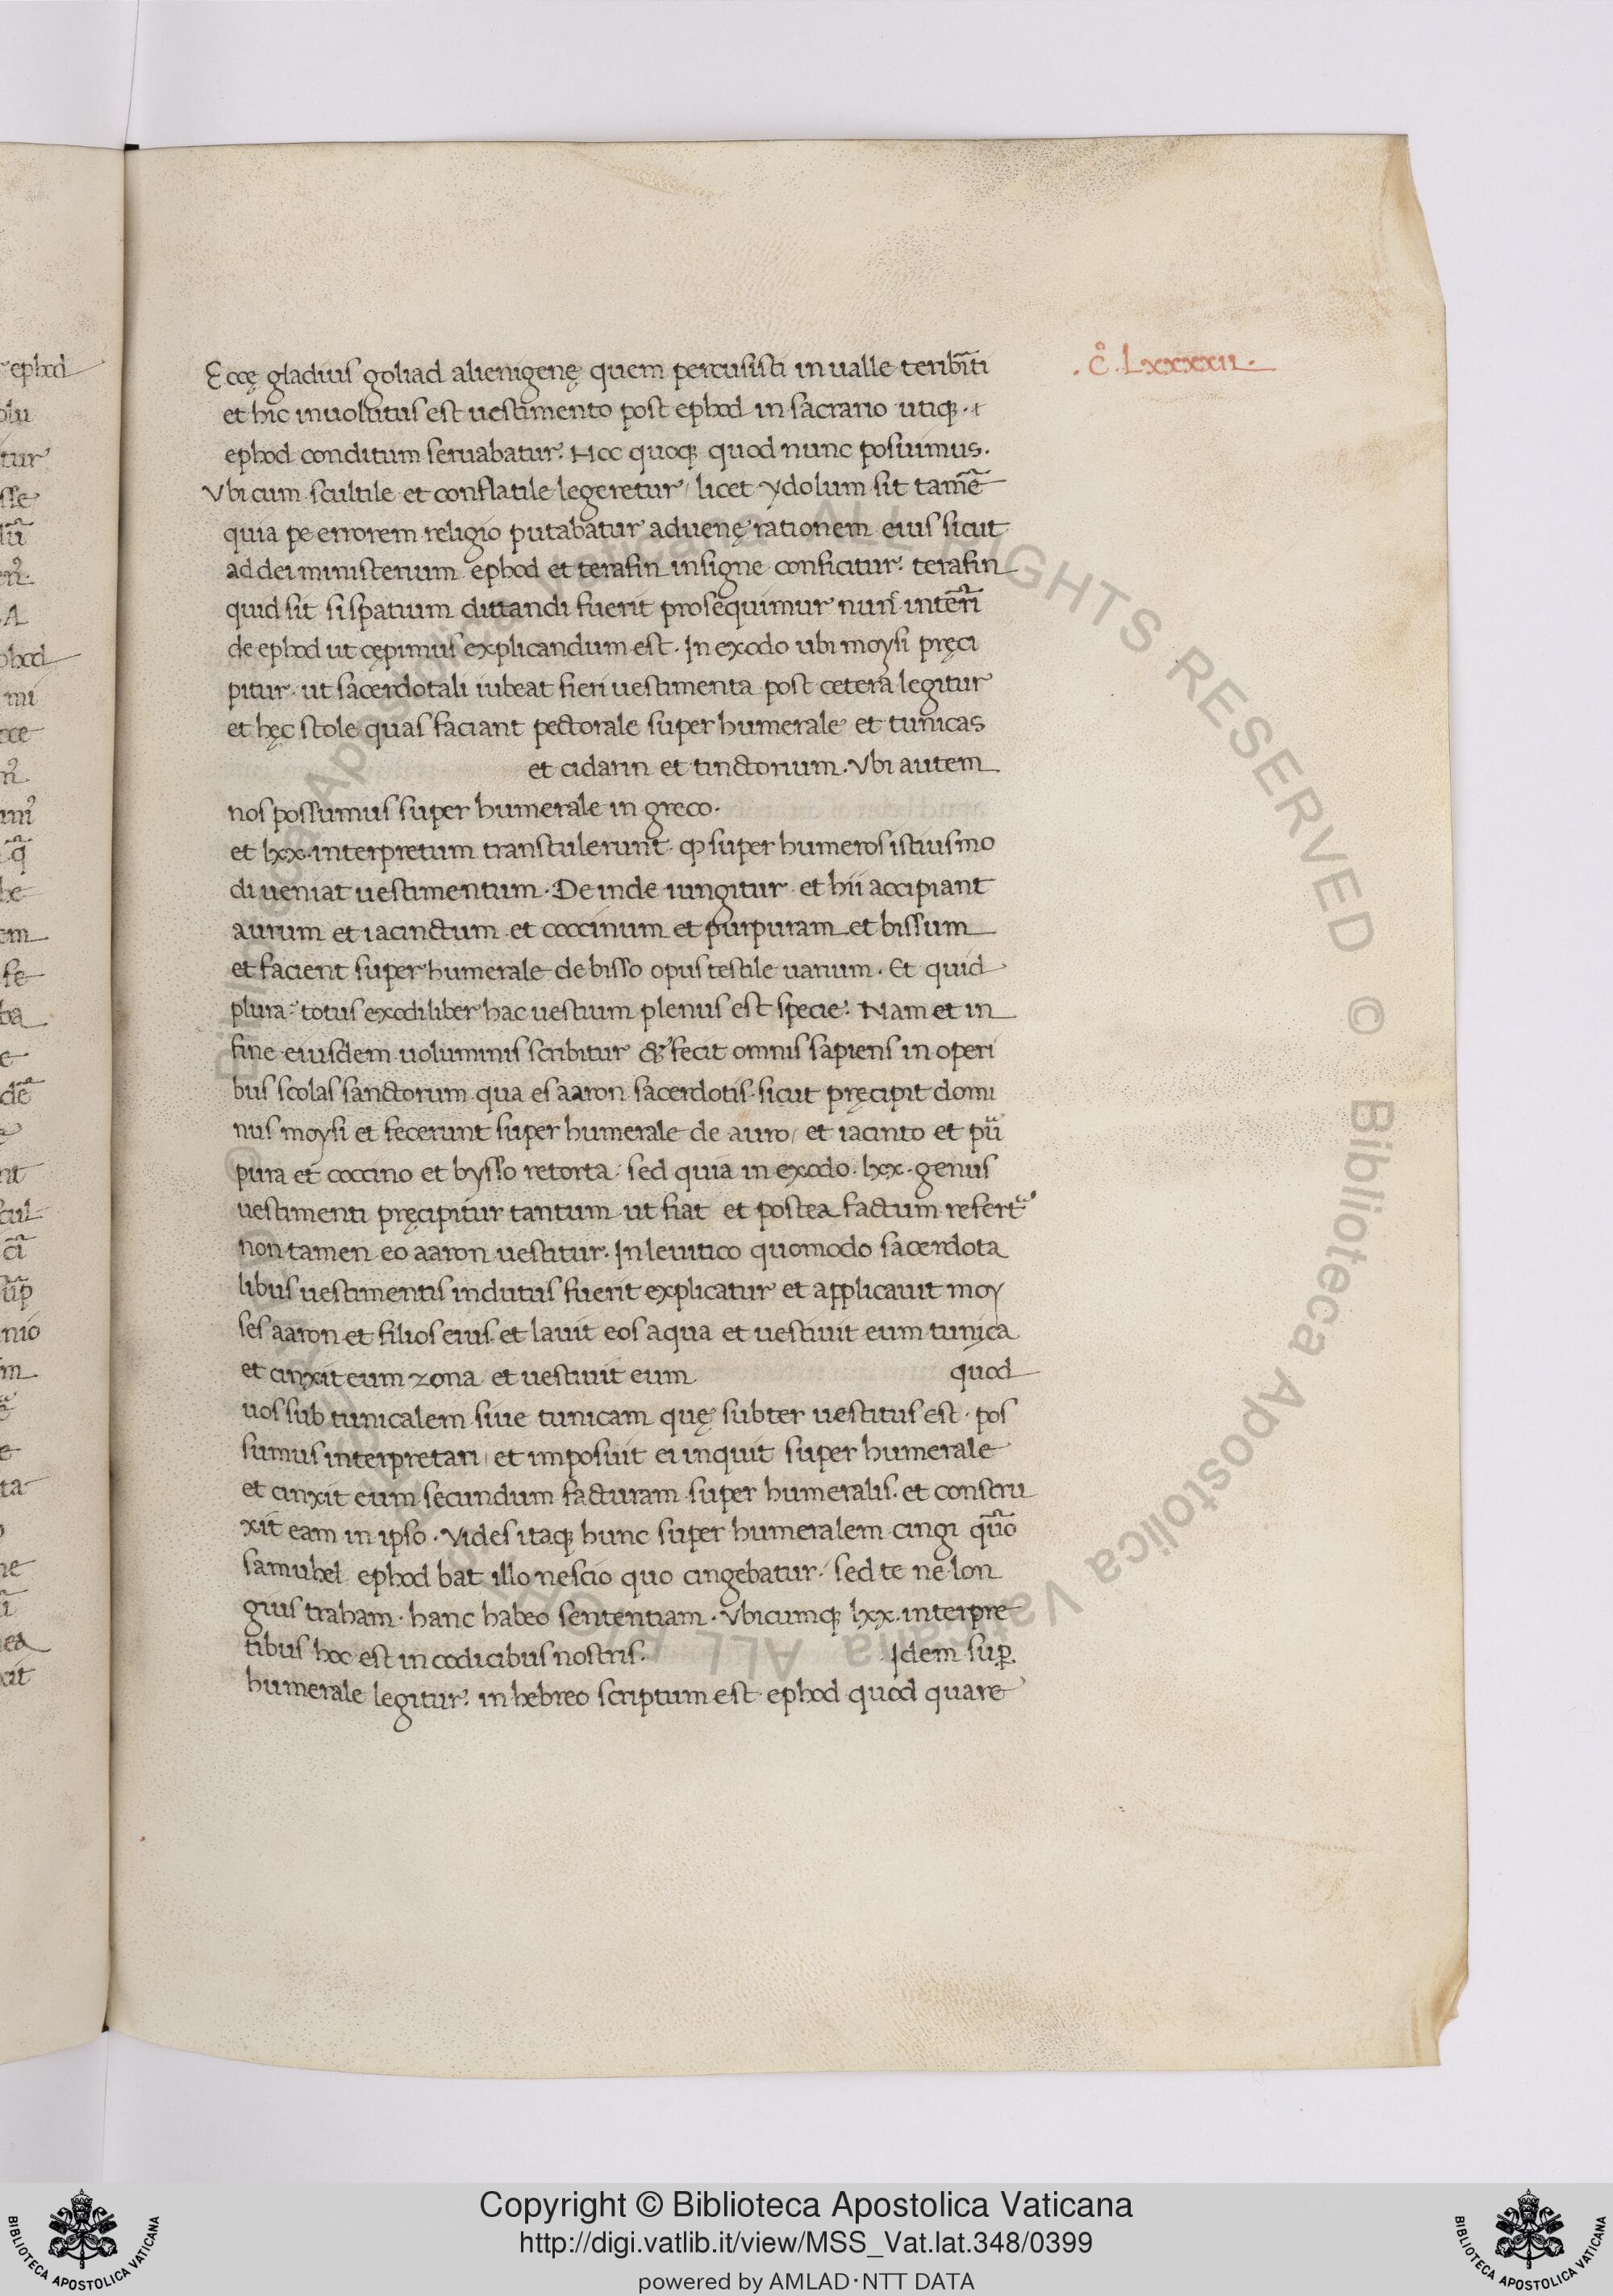 Eccę gladius goliad alienigenę quem percusisti in ualle teribĩti
.c̊. Lxxxxii.
et hic inuolutus est uestimento post ephod in sacrario utiq; .i.
ephod conditum seruabatur. Hoc quoq; quod nunc posuimus.
Vbi cum scultile et conflatile legeretur, licet ydolum sit tam̃e
quia pe errorem religio putabatur aduenę rationem eius sicut
ad dei ministerium ephod et terafin insigne conficitur. terafin
quid sit si spatium dittandi fuerit prosequimur nunc
de ephod ut cępimus explicandum est. In exodo ubi moysi pręci
pitur. ut sacerdotali iubeat fieri uestimenta post cetera legitur
et hęc stole quas faciant pectorale super humerale et tunicas
et cidarin et tinctorium. Vbi autem
nos possumus super humerale in greco.
et lxx. interpretum transtulerunt ꝙ super humeros istius mo
di ueniat uestimentum. De inde iungitur et hii accipiant
aurum et iacinctum et coccinum et purpuram et bissum
et facient super humerale de bisso opus testile uarium. Et quid
plura. totus exodi liber hac uestium plenus est specie. Nam et in
fine eiusdem uoluminis scribitur & fecit omnis sapiens in operi
bus scolas sanctorum qua es aaron sacerdotis. sicut pręcipit domi
nus moysi et fecerunt super humerale de auro, et iacinto et pu̇
pura et coccino et bysso retorta. sed quia in exodo. lxx. genus
uestimenti pręcipitur tantum ut fiat et postea factum refert᷑
non tamen eo aaron uestitur. In leuitico quomodo sacerdota
libus uestimentis indutus fuerit explicatur et applicauit moy
ses aaron et filios eius et lauit eos aqua et uestiuit eum tunica
et cinxit eum zona et uestiuit eum quod
uos sub tunicalem siue tunicam quę subter uestitus est. pos
sumus interpretari, et imposuit ei inquit super humerale
et cinxit eum secundum facturam super humeralis. et constru
xit eam in ipso. Vides itaq; hunc super humeralem cingi quõ
samuhel ephod bat illo nescio quo cingebatur. sed te ne lon
gius traham. hanc habeo sententiam. Vbicumq; lxx. interpre
tibus hoc est in codicibus nostris. Idem suꝑ.
humerale legitur. in hebreo scriptum est ephod quod quare
Copyright © Biblioteca Apostolica Vaticana
http://digi.vatlib.it/view/MSS_Vat.lat.348/0399
powered by AMLAD·NTT DATA